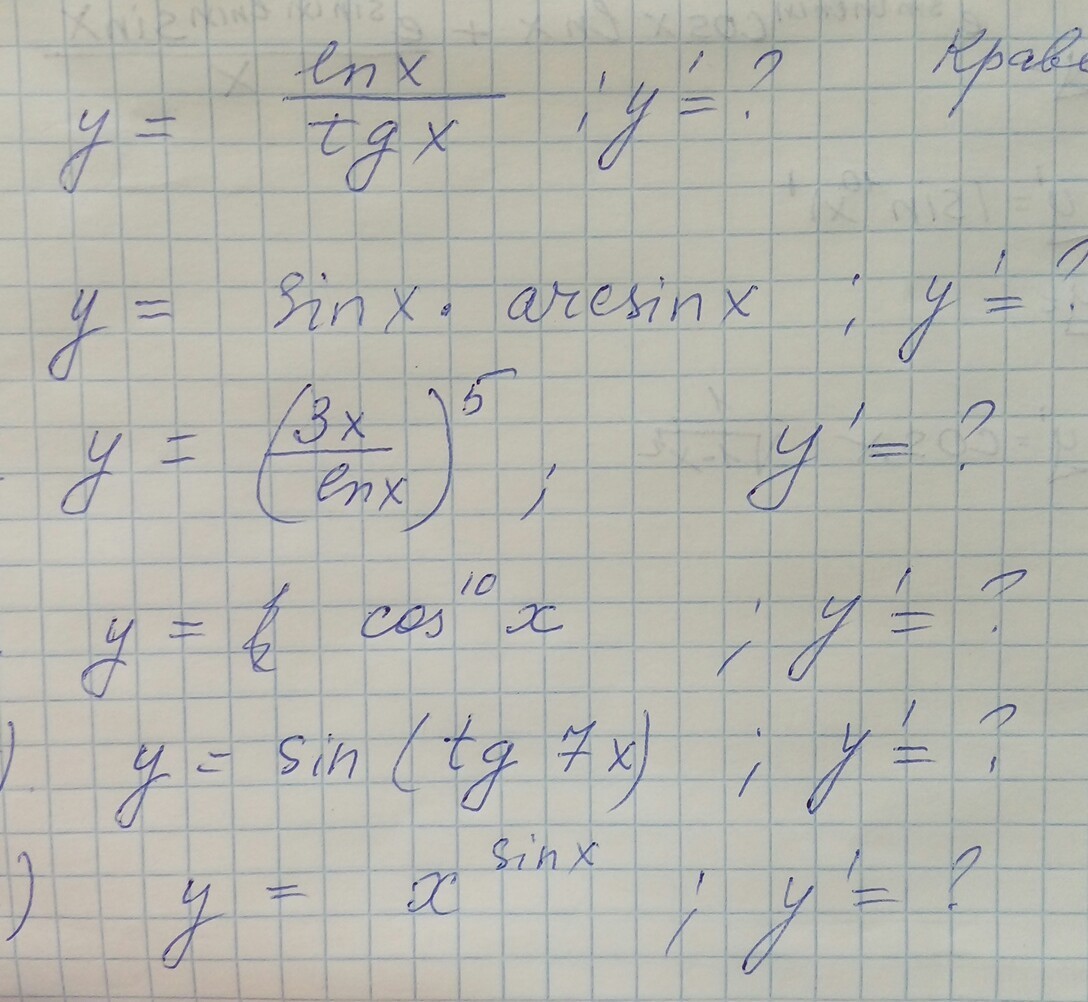 y = ln x / tg x ; y' = ? Краве
y = sin x · arcsin x ; y' = ?
y = (3x / ln x)^5 ; y' = ?
y = cos^10 x ; y' = ?
) y = sin (tg 7x) ; y' = ?
) y = x^sin x ; y' = ?